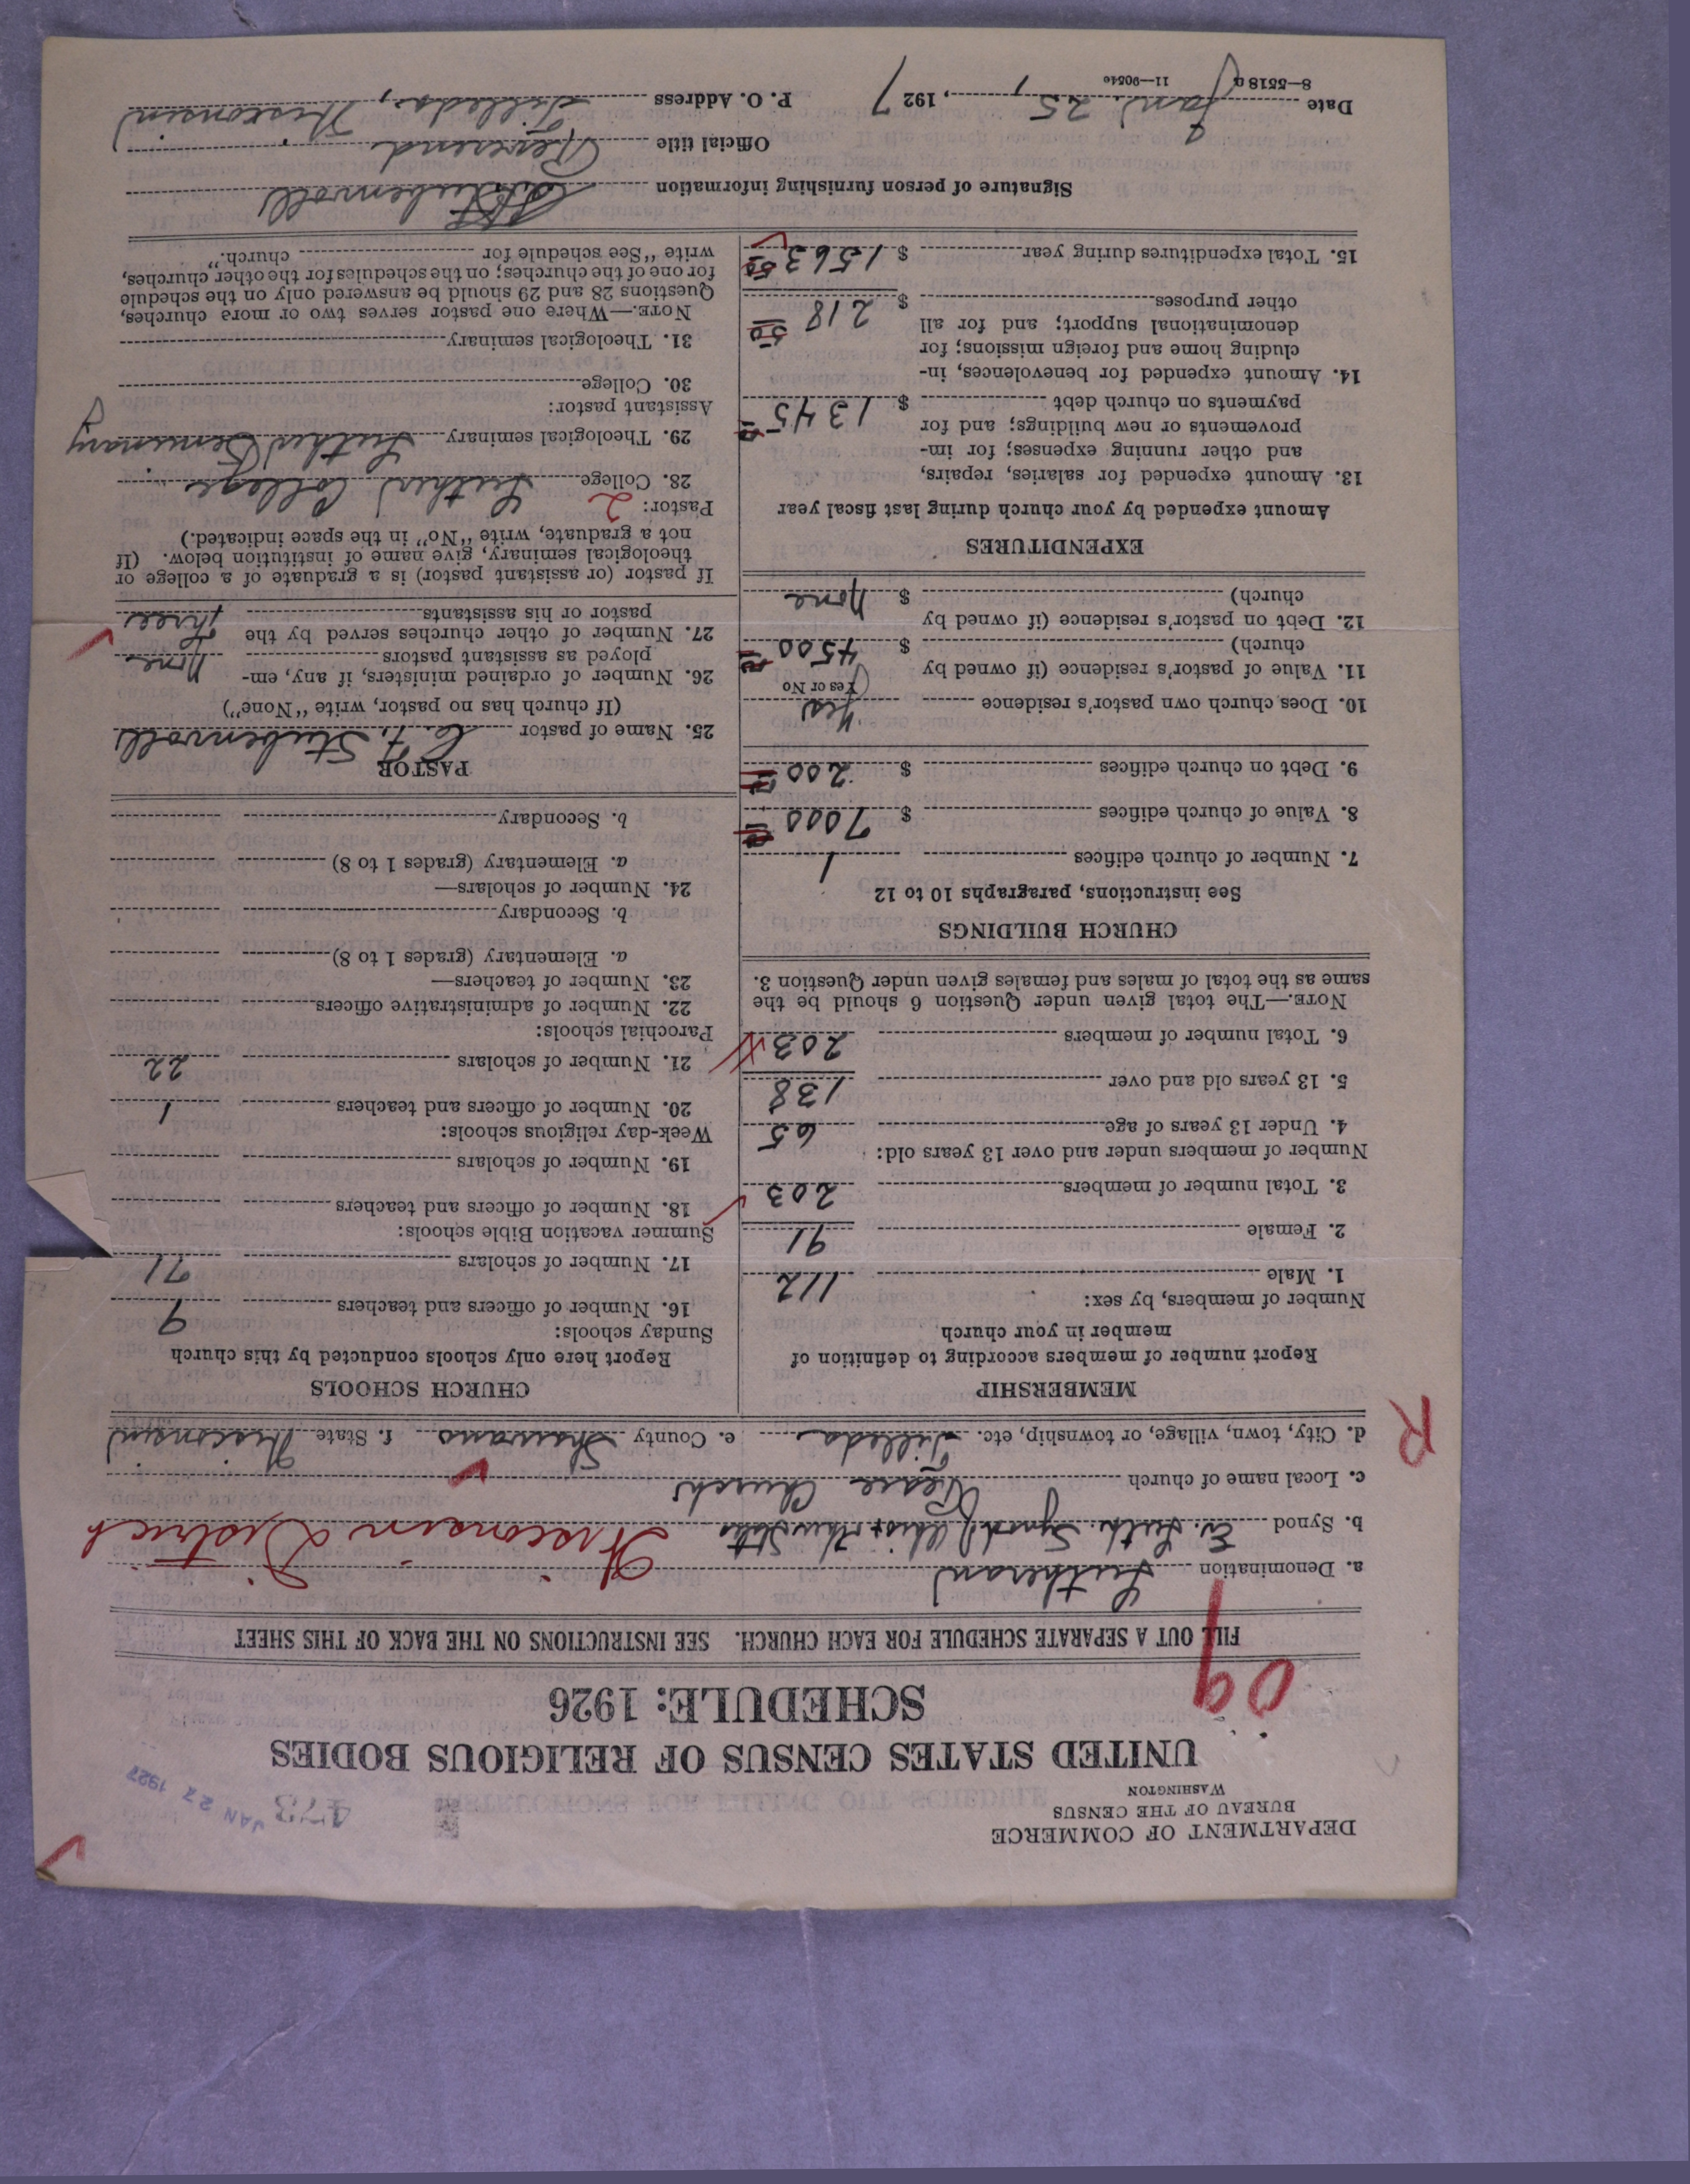 DEPARTMENT OF COMMERCE
BUREAU OF THE CENSUS
WASHINGTON
473
JAN 27 1927
UNITED STATES CENSUS OF RELIGIOUS BODIES
SCHEDULE: 1926
09
FILL OUT A SEPARATE SCHEDULE FOR EACH CHURCH. SEE INSTRUCTIONS ON THE BACK OF THIS SHEET
a. Denomination Lutheran
b. Synod Ev. Luth. Synod of Ohio + other States Wisconsin District
c. Local name of church Peace Church
d. City, town, village, or township, etc. Tilleda e. County Shawano f. State Wisconsin
R
MEMBERSHIP
Report number of members according to definition of
member in your church
Number of members, by sex:
1. Male 112
2. Female 91
3. Total number of members 203
Number of members under and over 13 years old:
4. Under 13 years of age 65
5. 13 years old and over 138
6. Total number of members 203
NOTE.—The total given under Question 6 should be the
same as the total of males and females given under Question 3.
CHURCH BUILDINGS
See instructions, paragraphs 10 to 12
7. Number of church edifices 1
8. Value of church edifices $ 7000
9. Debt on church edifices $ 200
10. Does church own pastor's residence Yes
Yes or No
11. Value of pastor's residence (if owned by
church) $ 4500
12. Debt on pastor's residence (if owned by
church) $ None
EXPENDITURES
Amount expended by your church during last fiscal year
13. Amount expended for salaries, repairs,
and other running expenses; for im-
provements or new buildings; and for
payments on church debt $ 1345
14. Amount expended for benevolences, in-
cluding home and foreign missions; for
denominational support; and for all
other purposes $ 218 50
15. Total expenditures during year $ 1563 50
CHURCH SCHOOLS
Report here only schools conducted by this church
Sunday schools:
16. Number of officers and teachers 9
17. Number of scholars 71
Summer vacation Bible schools:
18. Number of officers and teachers
19. Number of scholars
Week-day religious schools:
20. Number of officers and teachers 1
21. Number of scholars 22
Parochial schools:
22. Number of administrative officers
23. Number of teachers—
a. Elementary (grades 1 to 8)
b. Secondary
24. Number of scholars—
a. Elementary (grades 1 to 8)
b. Secondary
PASTOR
25. Name of pastor C. F. Stubenvoll
(If church has no pastor, write "None")
26. Number of ordained ministers, if any, em-
ployed as assistant pastors None
27. Number of other churches served by the
pastor or his assistants Three
If pastor (or assistant pastor) is a graduate of a college or
theological seminary, give name of institution below. (If
not a graduate, write "No" in the space indicated.)
Pastor: 2
28. College Luther College
29. Theological seminary Luther Seminary
Assistant pastor:
30. College
31. Theological seminary
NOTE.—Where one pastor serves two or more churches,
Questions 28 and 29 should be answered only on the schedule
for one of the churches; on the schedules for the other churches,
write "See schedule for church."
Signature of person furnishing information C. F. Stubenvoll
Official title Reverend
Date Jan. 25, 1927 P. O. Address Tilleda, Wisconsin
8—5518 a 11—9054